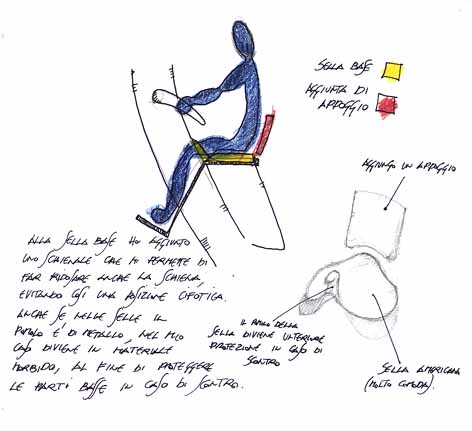 SELLA BASE
AGGIUNTA DI
APPOGGIO
AGGIUNGO UN APPOGGIO
ALLA SELLA BASE HO AGGIUNTO
UNO SCHIENALE CHE MI PERMETTE DI
FAR RIPOSARE ANCHE LA SCHIENA,
EVITANDO COSÌ UNA POSIZIONE CIFOTICA.
ANCHE SE NELLE SELLE IL
È DI METALLO, NEL MIO
CASO DIVIENE IN MATERIALE
MORBIDO, AL FINE DI PROTEGGERE
LE PARTI BASSE IN CASO DI SCONTRO.
IL DELLA
SELLA DIVIENE ULTERIORE
PROTEZIONE IN CASO DI
SCONTRO
SELLA AMERICANA
(MOLTO COMODA).